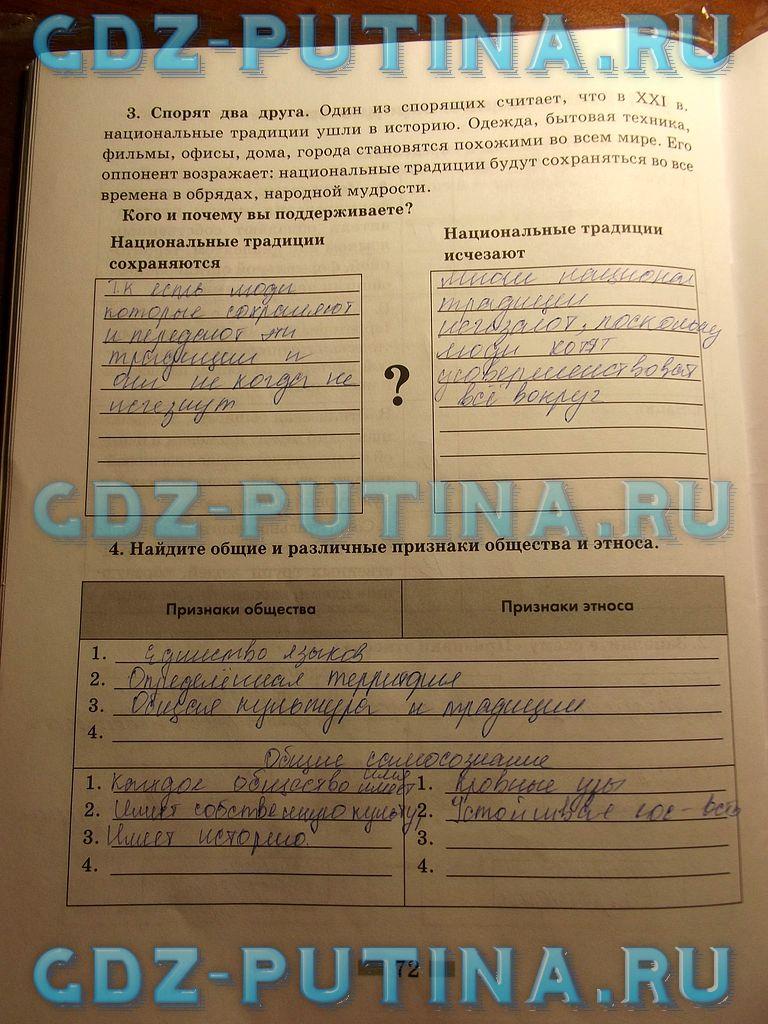 GDZ-PUTINA.RU
3. Спорят два друга. Один из спорящих считает, что в XXI в.
национальные традиции ушли в историю. Одежда, бытовая техника,
фильмы, офисы, дома, города становятся похожими во всем мире. Его
оппонент возражает: национальные традиции будут сохраняться во все
времена в обрядах, народной мудрости.
Кого и почему вы поддерживаете?
Национальные традиции
сохраняются
Т.к есть люди
которые сохраняют
и передают эти
традиции и
они не когда не
исчезнут
?
Национальные традиции
исчезают
многи национал
традиции
исчезают, поскольку
люди хотят
усовершенствоват
всё вокруг
GDZ-PUTINA.RU
4. Найдите общие и различные признаки общества и этноса.
Признаки общества
Признаки этноса
1. Единство языков
2. Определённая территория
3. Общая культура и традиции
4.
Общие самосознание
1. Каждое общество имеет
2. Имеет собственную культур
3. Имеет историю.
4.
1. Кровные узы
2. Устойчивые
3.
4.
72
GDZ-PUTINA.RU